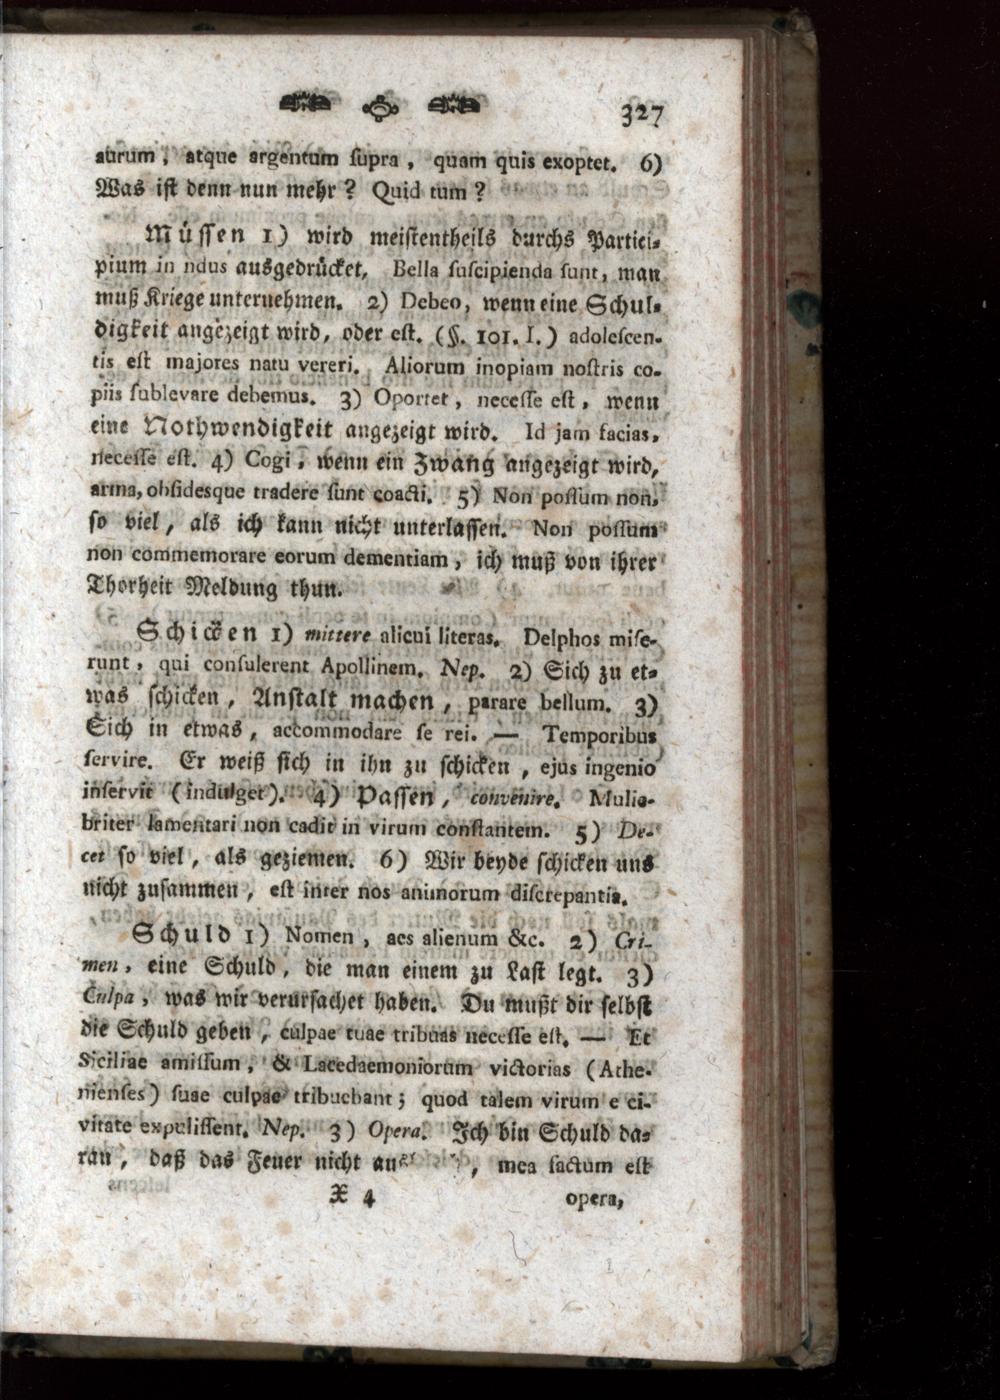 327
aurum, atque argentum ſupra, quam quis exoptet. 6)
Was iſt denn nun mehr? Quid tum?
Müſſen 1) wird meiſtentheils durchs Partici-
pium in ndus ausgedrücket, Bella ſuſcipienda ſunt, man
muß Kriege unternehmen. 2) Debeo, wenn eine Schul-
digkeit angezeigt wird, oder eſt. (§. 101. I.) adoleſcen-
tis eſt majores natu vereri. Aliorum inopiam noſtris co-
piis ſublevare debemus. 3) Oportet, neceſſe eſt, wenn
eine Nothwendigkeit angezeigt wird. Id jam facias,
neceſſe eſt. 4) Cogi, wenn ein Zwang angezeigt wird,
arma, obſidesque tradere ſunt coacti. 5) Non poſſum non,
ſo viel, als ich kann nicht unterlaſſen. Non poſſum
non commemorare eorum dementiam, ich muß von ihrer
Thorheit Meldung thun.
Schicken 1) mittere alicui literas. Delphos miſe-
runt, qui conſulerent Apollinem. Nep. 2) Sich zu et-
was ſchicken, Anſtalt machen, parare bellum. 3)
Sich in etwas, accommodare ſe rei. — Temporibus
ſervire. Er weiß ſich in ihn zu ſchicken, ejus ingenio
inſervit (indulget). 4) Paſſen, convenire. Mulie-
briter lamentari non cadit in virum conſtantem. 5) De-
cet ſo viel, als geziemen. 6) Wir beyde ſchicken uns
nicht zuſammen, eſt inter nos animorum diſcrepantia.
Schuld 1) Nomen, aes alienum &c. 2) Cri-
men, eine Schuld, die man einem zu Laſt legt. 3)
Culpa, was wir verurſachet haben. Du mußt dir ſelbſt
die Schuld geben, culpae tuae tribuas neceſſe eſt. — Et
Siciliae amiſſum, & Lacedaemoniorum victorias (Athe-
nienſes) ſuae culpae tribuebant; quod talem virum e ci-
vitate expuliſſent. Nep. 3) Opera. Ich bin Schuld da-
ran, daß das Feuer nicht , mea factum eſt
X 4 opera,